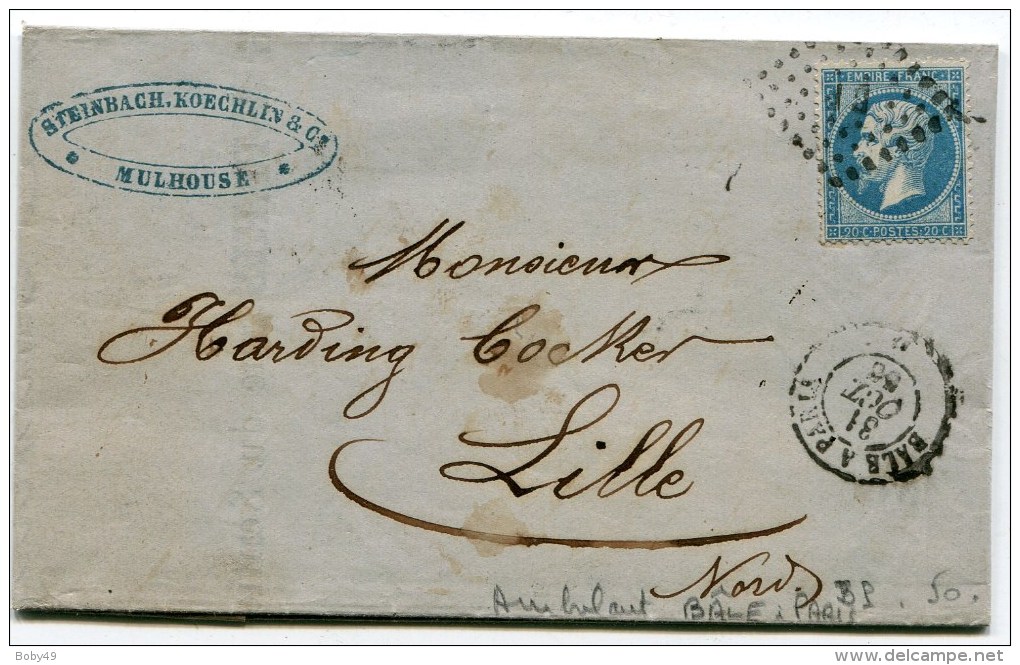 STEINBACH, KOECHLIN & Cie
MULHOUSE
EMPIRE FRANC
20 C POSTES 20 C
Monsieur
Harding Cocker
Lille
Nord
BALE A PARIS
31
OCT
Ambulant BÂLE à PARIS
50.
Boby49
http://www.delcampe.net